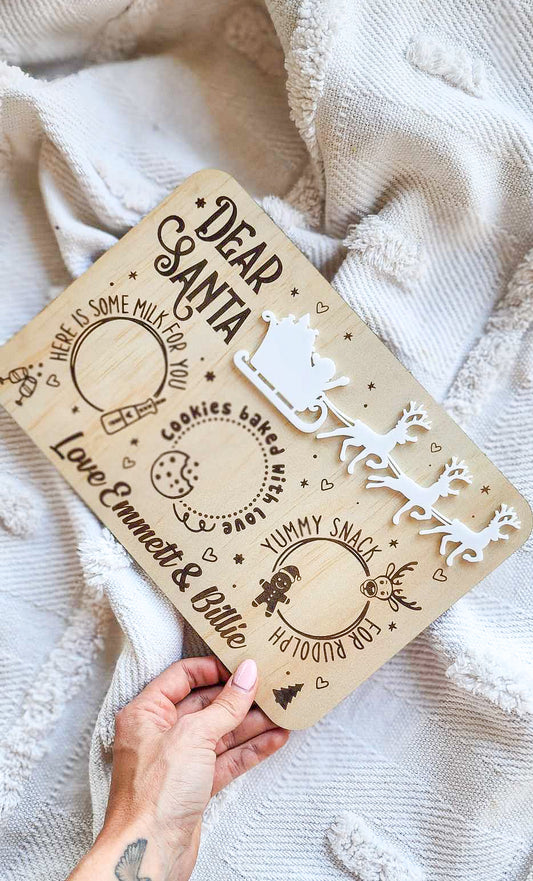 DEAR
SANTA
HERE IS SOME MILK FOR YOU
Cookies baked with love
YUMMY SNACK
FOR RUDOLPH
Love Emmett & Billie